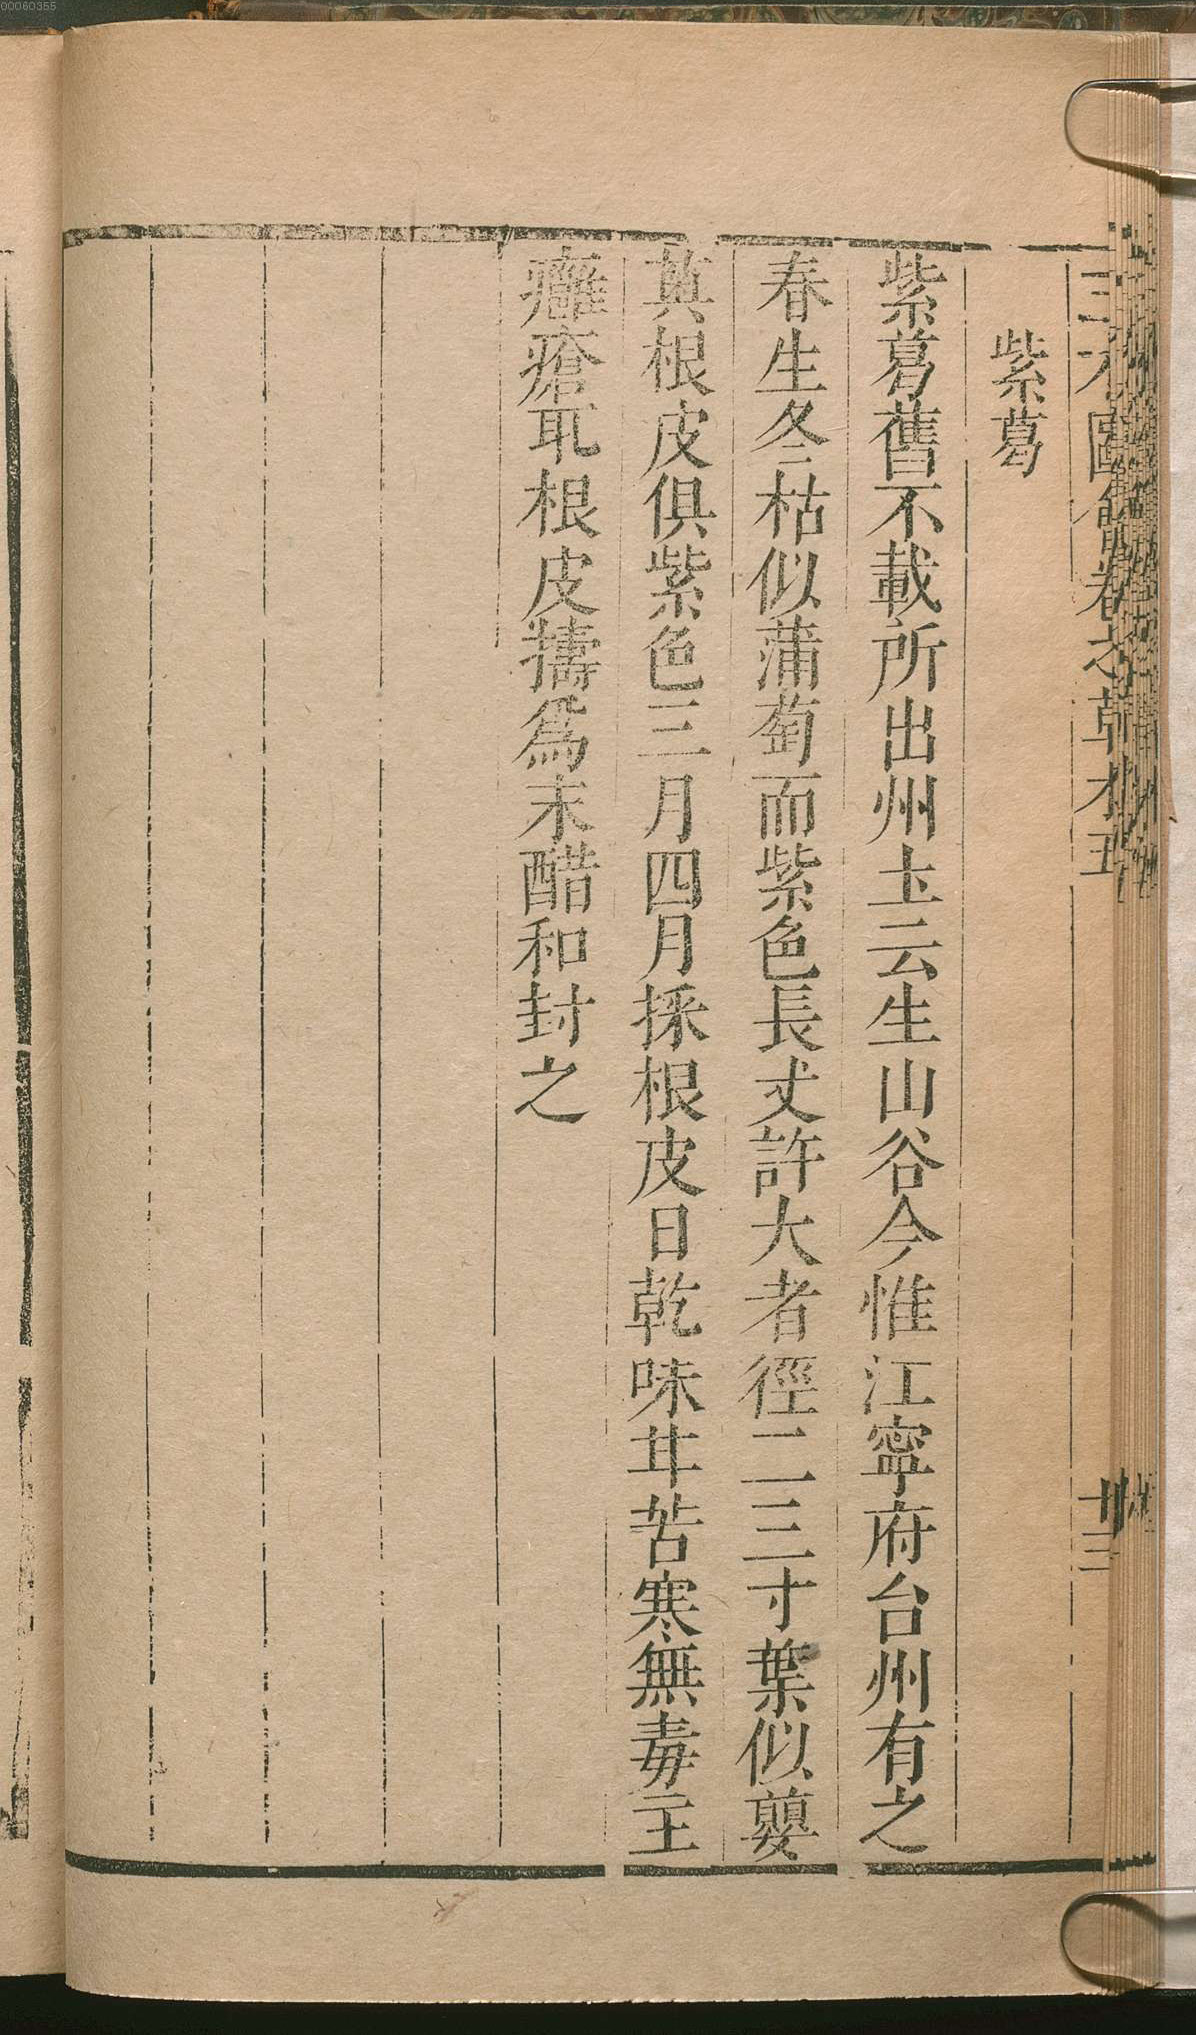 00060355
三才圖會卷之草木五
廿三
紫葛
紫葛舊不載所出州土云生山谷今惟江寧府台州有之
春生冬枯似蒲萄而紫色長丈許大者徑二三寸葉似蘡
薁根皮俱紫色三月四月採根皮日乾味甘苦寒無毒主
癰瘡取根皮擣爲末醋和封之